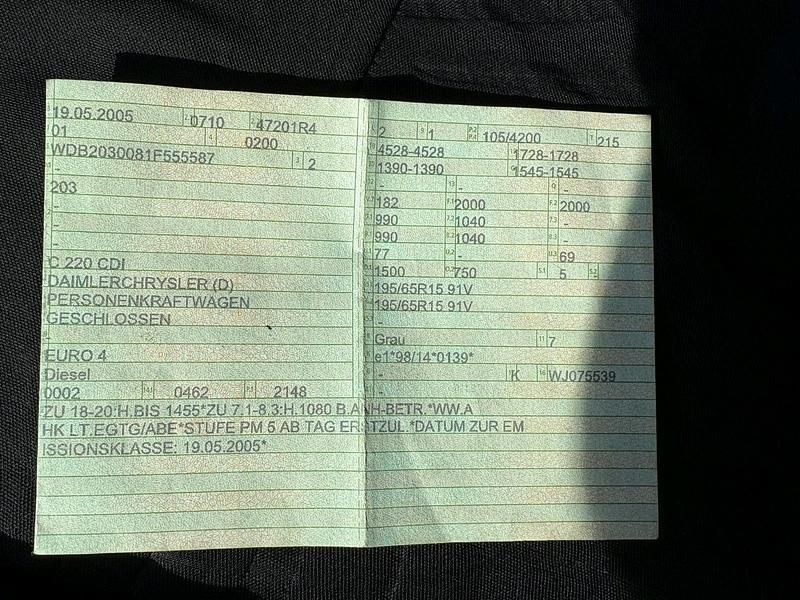 19.05.2005 0710 47201R4
01 0200
WDB2030081F555587 2
-
203
-
-
-
C 220 CDI
DAIMLERCHRYSLER (D)
PERSONENKRAFTWAGEN
GESCHLOSSEN
-
EURO 4
Diesel
0002 0462 2148
2 1 105/4200 215
4528-4528 1728-1728
1390-1390 1545-1545
- - -
182 2000 2000
990 1040 -
990 1040 -
77 - 69
1500 750 5
195/65R15 91V
195/65R15 91V
-
Grau 7
e1*98/14*0139*
- K WJ075539
-
ZU 18-20:H.BIS 1455*ZU 7.1-8.3:H.1080 B.ANH-BETR.*WW.A
HK LT.EGTG/ABE*STUFE PM 5 AB TAG ERSTZUL.*DATUM ZUR EM
ISSIONSKLASSE: 19.05.2005*